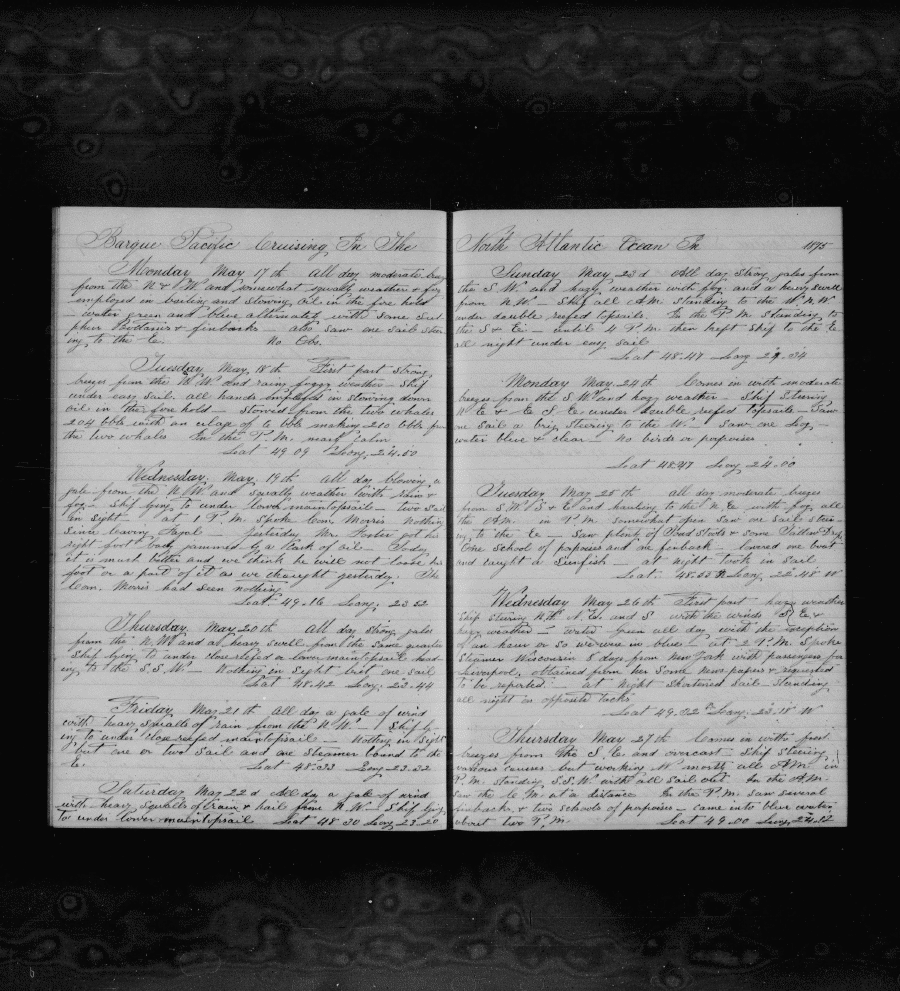 Barque Pacific Cruising In The
Monday May 17th All day moderate
from the N & W and somewhat squaly weather & fog
employed in boiling and stowing oil in the fore hold
water green and blue alternated with some Sul
pher Bottoms & finbacks also saw one sail steer
ing to the E. No Obs.
Tuesday May 18th First part strong
breezes from the N W and rainy foggy weather - Ship
under easy sail. all hands employed in stowing down
oil in the fore hold - stowed from the two whales
204 bbls with an ulage of 6 bbls making 210 bbls from
the two whales In the P.M. nearly calm
Lat 49.09 Long 24.50
Wednesday May 19th all day blowing a
gale from the N W and squally weather with rain &
fog - Ship lying to under lower maintopsail - two sail
in sight - at 1 P.M. spoke Com. Morris Nothing
since leaving Fayal - Yesterday Mr. Foster got his
right foot badly jammed by a cask of oil - Today
it is much better and we think he will not loose his
foot or a part of it as we thought yesterday. The
Com. Morris had seen nothing
Lat. 49.16 Long. 23.52
Thursday. May 20th All day strong gales
from the N.W and a heavy swell from the same quarter
Ship lying to under close reefed & lower maintopsail head
ing to the S.S.W - Nothing in Sight but one sail
Lat 48.42 Long. 23.44
Friday, May 21th All day a gale of wind
with heavy squalls of rain from the N.W. Ship ly
ing to under close reefed maintopsail - Nothing in Sight
but one or two sail and one Steamer bound to the
E. Lat 48.33 Long 23.32
Saturday May 22d All day a gale of wind
with heavy squalls of rain & hail from N.W - Ship lying
to under lower maintopsail Lat 48 30 Long 23.20
North Atlantic Ocean In 1875
Sunday May 23d All day strong gales from
the S.W. and hazy weather with fog and a heavy swell
from N.W. - Ship all A.M. standing to the W.N.W
under double reefed topsails. In the P.M. standing to
the S & E - until 4 P.M. then kept ship to the E.
all night under easy sail
Lat 48.47 Long 24.34
Monday May 24th Comes in with moderate
breezes from the S.W and hazy weather - Ship steering
N E & E S E under double reefed topsails - Saw
one Sail a brig steering to the W - Saw one log -
water blue & clear - No birds or poposes
Lat 48.47 Long 24.00
Tuesday May 25th all day moderate breezes
from S.W. S & E and hauling to the N.E with fog all
the A.M. in P.M. somewhat open saw one sail steer-
ing to the E - Saw plenty of
One school of poposes and one finback - Lowered one boat
and caught a Sunfish - at night took in sail
Lat. 48.55 N Long. 22.48 W
Wednesday May 26th First part hazy weather
Ship steering N.W. N.E. and S with the winds S. E. &
hazy weather - water green all day with the exception
of an hour or so we were in blue - at 2 P.M. Spoke
Steamer Wisconsin 8 days from New York with passengers for
Liverpool, obtained from her some news papers & requested
to be reported. at night Shortened sail - Standing
all night on opposite tacks
Lat 49.02 Long. 23.18 W
Thursday May 27th Comes in with fresh
breezes from the S. E. and overcast - Ship steering
various courses but working N. north all A.M. in
P.M. standing S.S.W with all sail out In the A.M.
saw the C M at a distance In the P.M. saw several
finbacks & two schools of poposes - came into blue water
about two P.M Lat 49.00 Long. 24.52